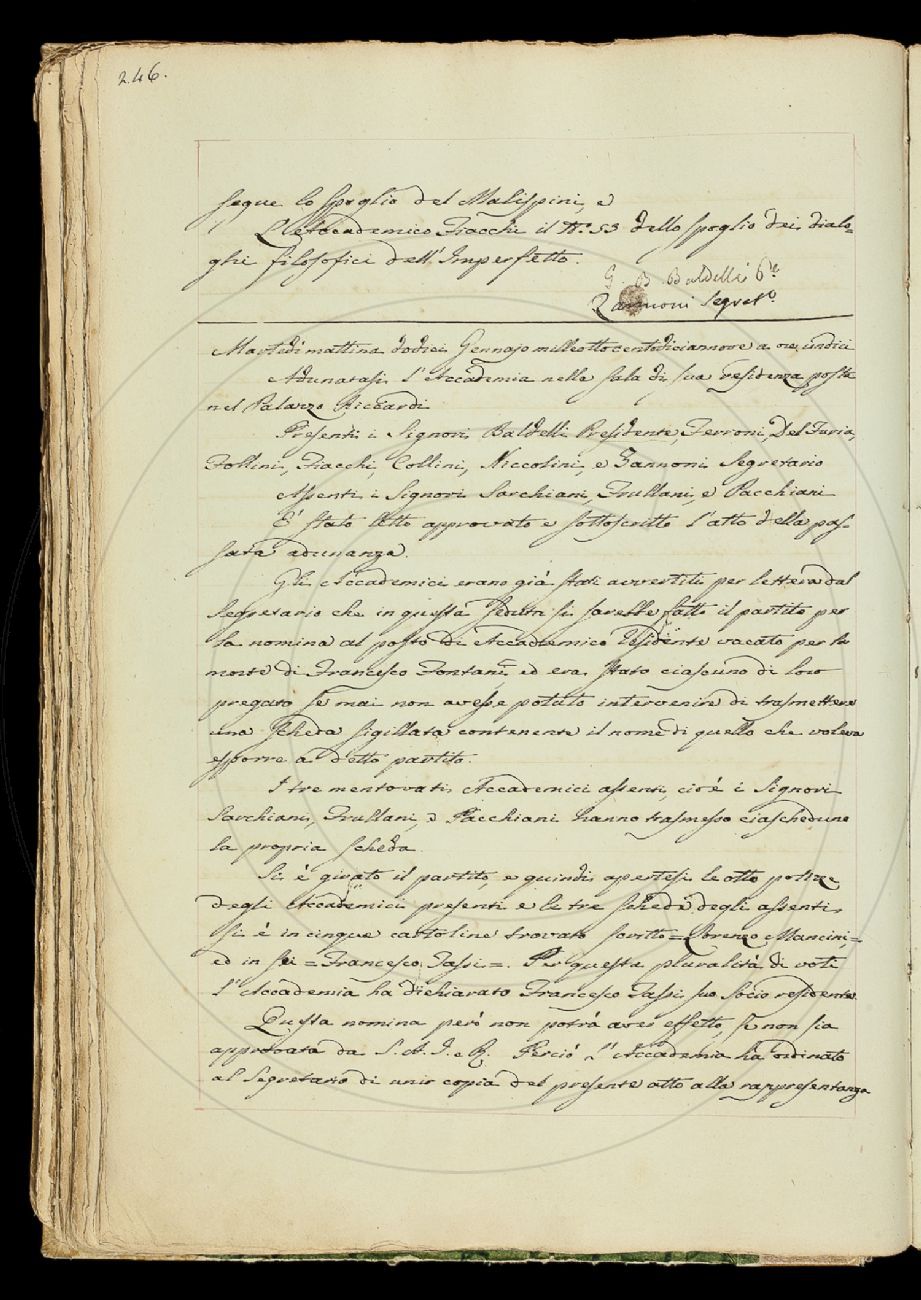 246.
segue lo spoglio del Malispini, e
L'Accademico Fiacchi il N.° 53 dello spoglio dei dialo=
ghi filosofici dell'Imperfetto.
G B Baldelli P.te
Zannoni Segret.o
Martedì mattina dodici Gennajo milleottocentodiciannove a ore undici
Adunatasi l'Accademia nella sala di sua residenza posta
nel Palazzo Riccardi
Presenti i Signori Baldelli Presidente Ferroni, Del Furia,
Follini, Fiacchi, Collini, Niccolini, e Zannoni Segretario
Assenti i Signori Sarchiani, Frullani, e Pacchiani
E' stato letto approvato e sottoscritto l'atto della pas-
sata adunanza.
Gli Accademici erano già stati avvertiti per lettera dal
Segretario che in questa seduta si sarebbe fatto il partito per
la nomina al posto di Accademico residente vacato per la
morte di Francesco Fontani ed era stato ciascuno di loro
pregato se mai non avesse potuto intervenire di trasmettere
una scheda sigillata contenente il nome di quello che voleva
esporre a detto partito.
I tre mentovati Accademici assenti, cioè i Signori
Sarchiani, Frullani, e Pacchiani hanno trasmesso ciascheduno
la propria scheda
Si è girato il partito, e quindi apertesi le otto polizze
degli Accademici presenti e le tre schede degli assenti,
si è in cinque cartoline trovato scritto = Lorenzo Mancini, =
ed in sei = Francesco Tassi. =. Per questa pluralità di voti
l'Accademia ha dichiarato Francesco Tassi suo Socio residente.
Questa nomina però non potrà aver effetto, se non sia
approvata da S. A. I. e R. Perciò l'Accademia ha ordinato
al Segretario di unir copia del presente atto alla rappresentanza